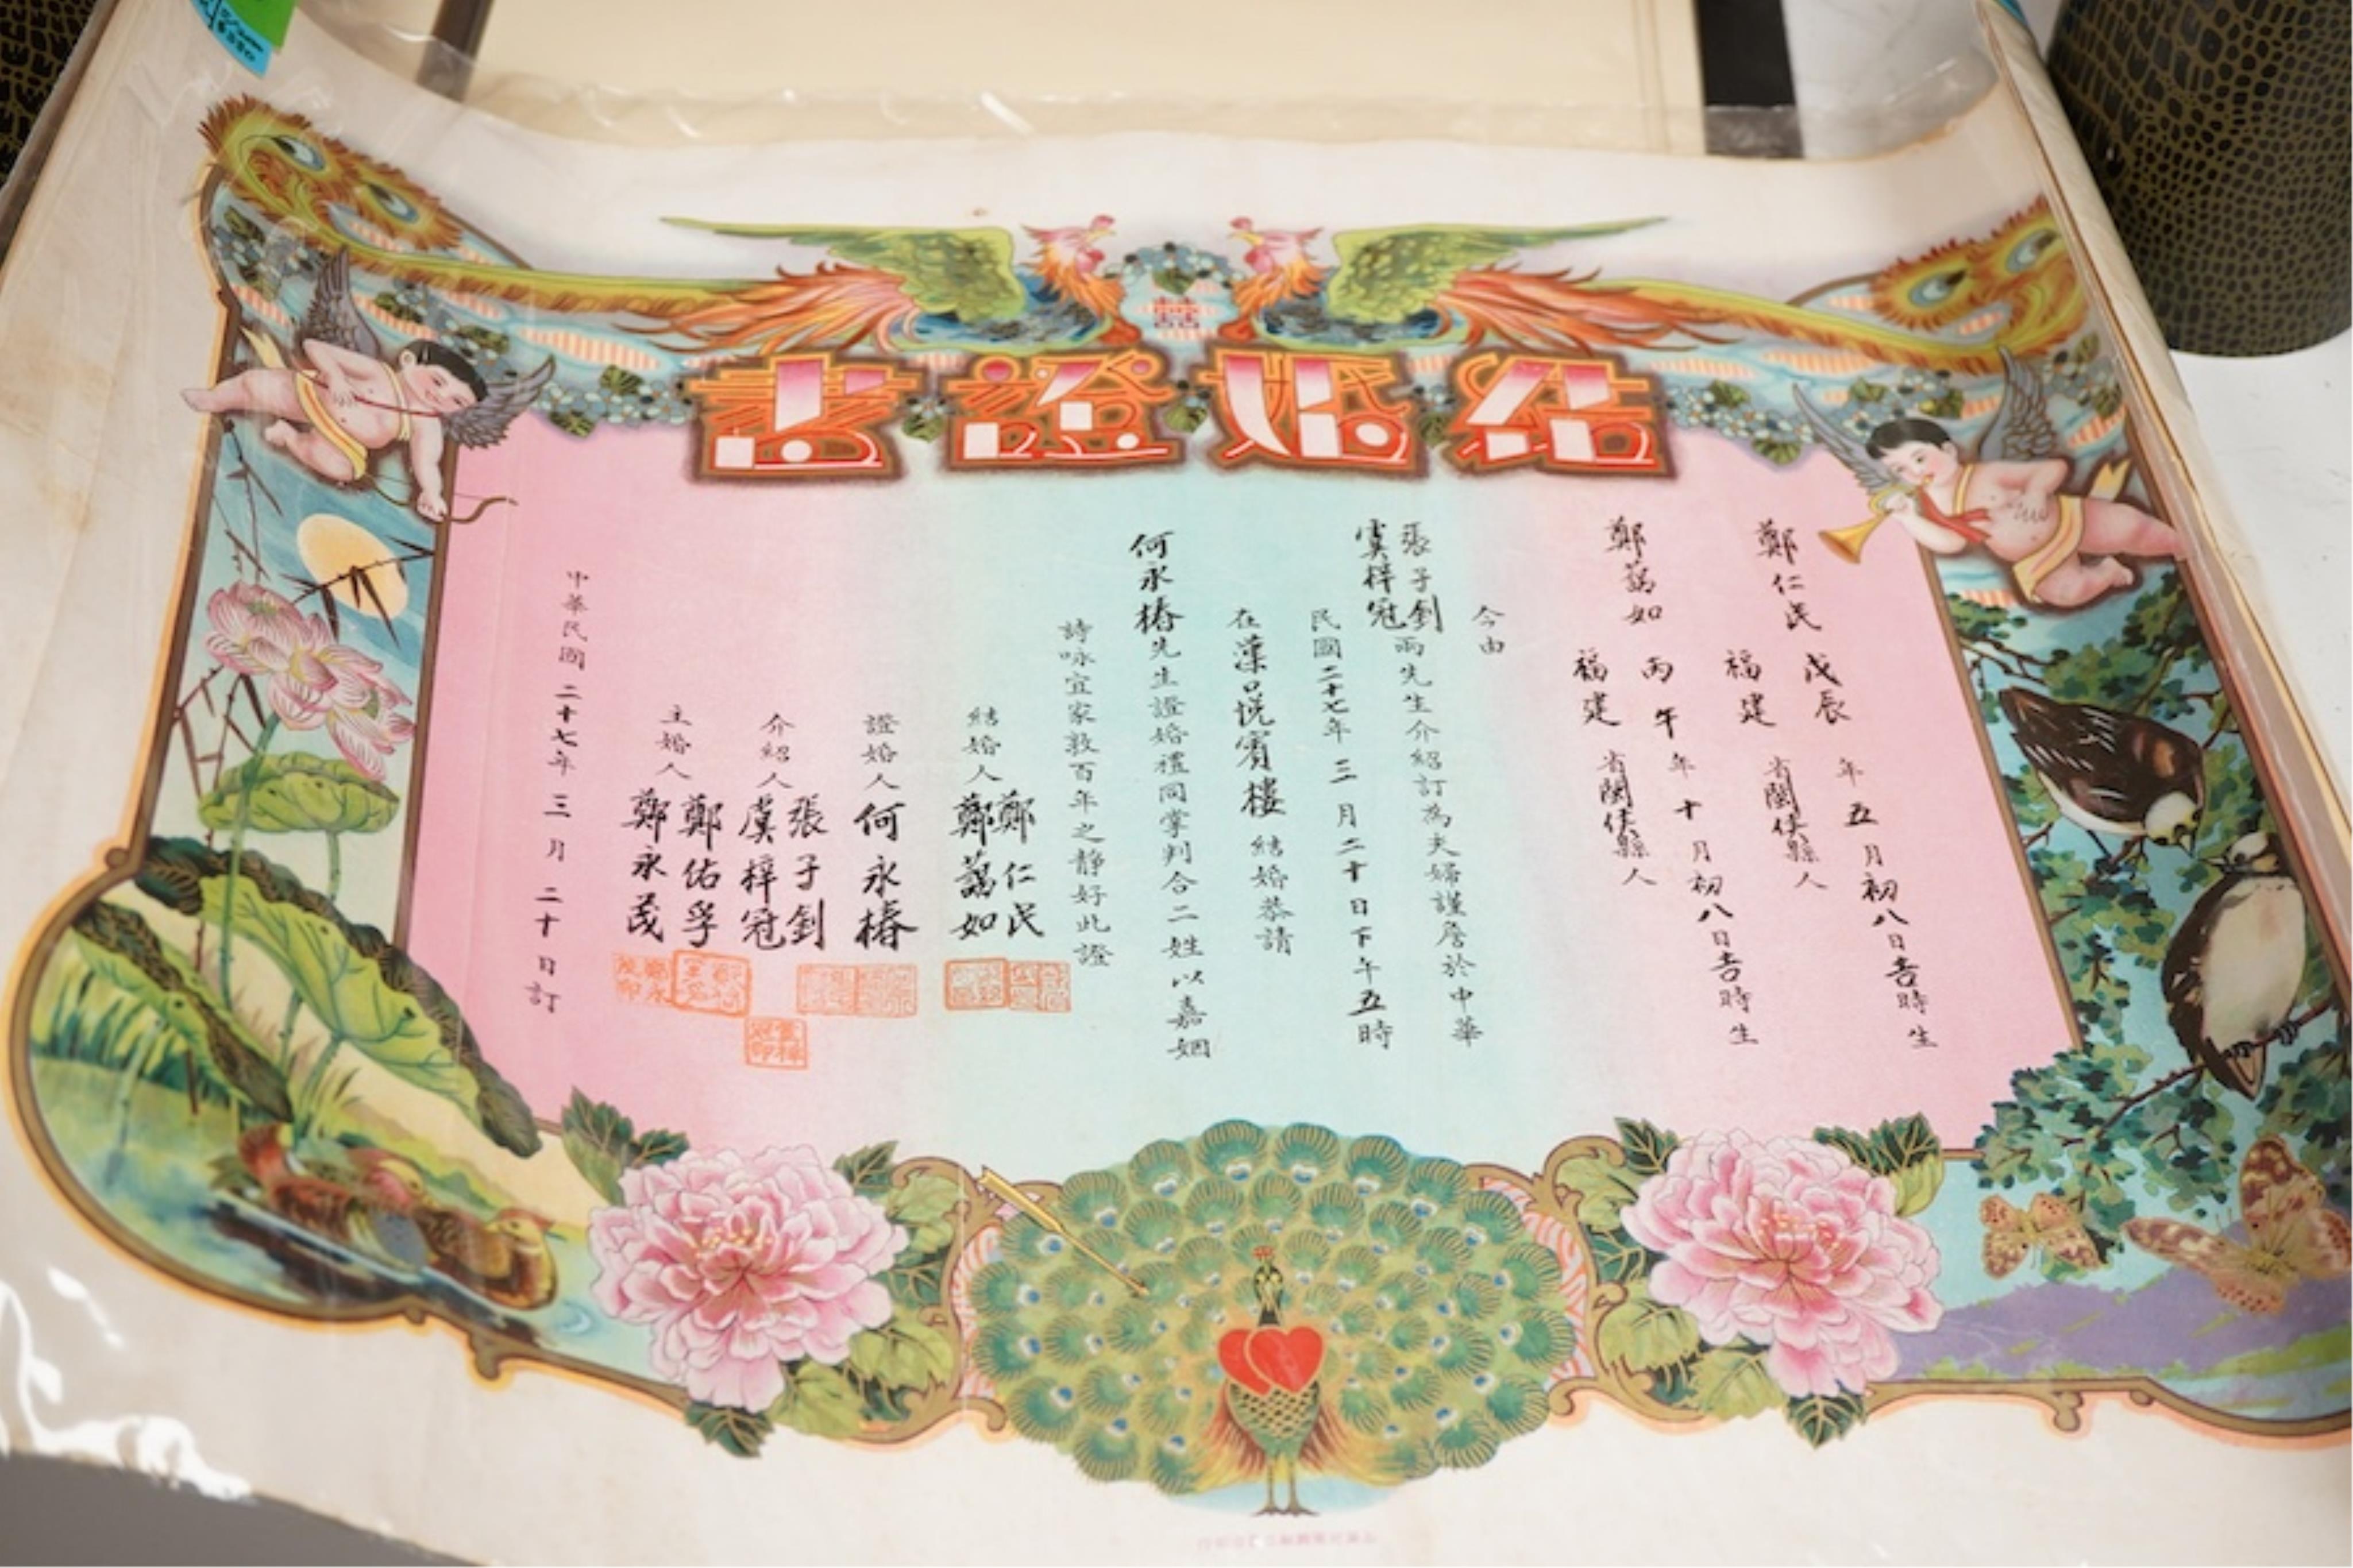 囍
結婚證書
鄭仁民 戊辰 年 五 月 初八 日 吉 時 生
福建 省 閩侯 縣 人
鄭藹如 丙午 年 十 月 初八 日 吉 時 生
福建 省 閩侯 縣 人
今由
張子釗
虞梓冠 兩先生介紹訂為夫婦謹詹於中華
民國二十七年 三 月 二十 日 下 午 五 時
在 悦賓樓 結婚恭請
何永椿 先生證婚禮同掌判合二姓以嘉姻
詩咏宜家敦百年之靜好此證
結婚人 鄭仁民
鄭藹如
證婚人 何永椿
介紹人 張子釗
虞梓冠
主婚人 鄭佑孚
鄭永茂
中華民國 二十七 年 三 月 二十 日訂